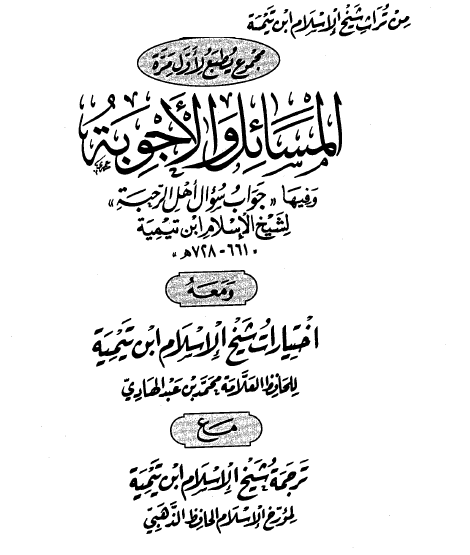 من تراث شيخ الإسلام ابن تيمية
مجموع يطبع لأول مرة
المسائل والأجوبة
وفيها «جواب سؤال أهل الرحبة»
لشيخ الإسلام ابن تيمية
«٦٦١ - ٧٢٨هـ»
ومعه
اختيارات شيخ الإسلام ابن تيمية
للحافظ العلامة محمد بن عبد الهادي
مع
ترجمة شيخ الإسلام ابن تيمية
لمؤرخ الإسلام الحافظ الذهبي